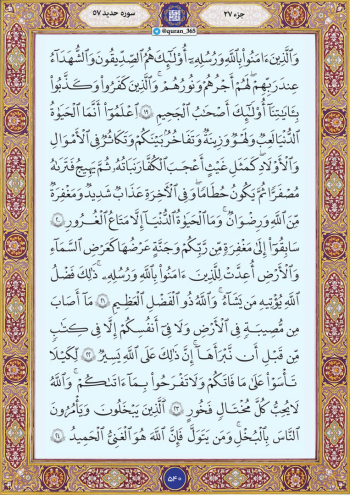 سوره حدید ۵۷
@quran_365
جزء ۲۷
وَٱلَّذِينَ ءَامَنُوا۟ بِٱللَّهِ وَرُسُلِهِۦٓ أُو۟لَـٰٓئِكَ هُمُ ٱلصِّدِّيقُونَ وَٱلشُّهَدَآءُ
عِندَ رَبِّهِمْ لَهُمْ أَجْرُهُمْ وَنُورُهُمْ ۖ وَٱلَّذِينَ كَفَرُوا۟ وَكَذَّبُوا۟
بِـَٔايَـٰتِنَآ أُو۟لَـٰٓئِكَ أَصْحَـٰبُ ٱلْجَحِيمِ ۝١٩ ٱعْلَمُوٓا۟ أَنَّمَا ٱلْحَيَوٰةُ
ٱلدُّنْيَا لَعِبٌ وَلَهْوٌ وَزِينَةٌ وَتَفَاخُرٌۢ بَيْنَكُمْ وَتَكَاثُرٌ فِى ٱلْأَمْوَٰلِ
وَٱلْأَوْلَـٰدِ ۖ كَمَثَلِ غَيْثٍ أَعْجَبَ ٱلْكُفَّارَ نَبَاتُهُۥ ثُمَّ يَهِيجُ فَتَرَىٰهُ
مُصْفَرًّا ثُمَّ يَكُونُ حُطَـٰمًا ۖ وَفِى ٱلْـَٔاخِرَةِ عَذَابٌ شَدِيدٌ وَمَغْفِرَةٌ
مِّنَ ٱللَّهِ وَرِضْوَٰنٌ ۚ وَمَا ٱلْحَيَوٰةُ ٱلدُّنْيَآ إِلَّا مَتَـٰعُ ٱلْغُرُورِ ۝٢٠
سَابِقُوٓا۟ إِلَىٰ مَغْفِرَةٍ مِّن رَّبِّكُمْ وَجَنَّةٍ عَرْضُهَا كَعَرْضِ ٱلسَّمَآءِ
وَٱلْأَرْضِ أُعِدَّتْ لِلَّذِينَ ءَامَنُوا۟ بِٱللَّهِ وَرُسُلِهِۦ ۚ ذَٰلِكَ فَضْلُ
ٱللَّهِ يُؤْتِيهِ مَن يَشَآءُ ۚ وَٱللَّهُ ذُو ٱلْفَضْلِ ٱلْعَظِيمِ ۝٢١ مَآ أَصَابَ
مِن مُّصِيبَةٍ فِى ٱلْأَرْضِ وَلَا فِىٓ أَنفُسِكُمْ إِلَّا فِى كِتَـٰبٍ
مِّن قَبْلِ أَن نَّبْرَأَهَآ ۚ إِنَّ ذَٰلِكَ عَلَى ٱللَّهِ يَسِيرٌ ۝٢٢ لِّكَيْلَا
تَأْسَوْا۟ عَلَىٰ مَا فَاتَكُمْ وَلَا تَفْرَحُوا۟ بِمَآ ءَاتَىٰكُمْ ۗ وَٱللَّهُ
لَا يُحِبُّ كُلَّ مُخْتَالٍ فَخُورٍ ۝٢٣ ٱلَّذِينَ يَبْخَلُونَ وَيَأْمُرُونَ
ٱلنَّاسَ بِٱلْبُخْلِ ۗ وَمَن يَتَوَلَّ فَإِنَّ ٱللَّهَ هُوَ ٱلْغَنِىُّ ٱلْحَمِيدُ ۝٢٤
۵۴۰